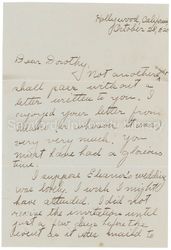 Hollywood, California
October 28,
Dear Dorothy,
Not another
shall pass without a
letter written to you. I
enjoyed your letter from
wherever it was
very very much. You
must have had a glorious
time.
I suppose Eleanor's wedding
was lovely. I wish I might
have attended. I did not
receive the invitation until
just a few days before the
event as it was mailed to